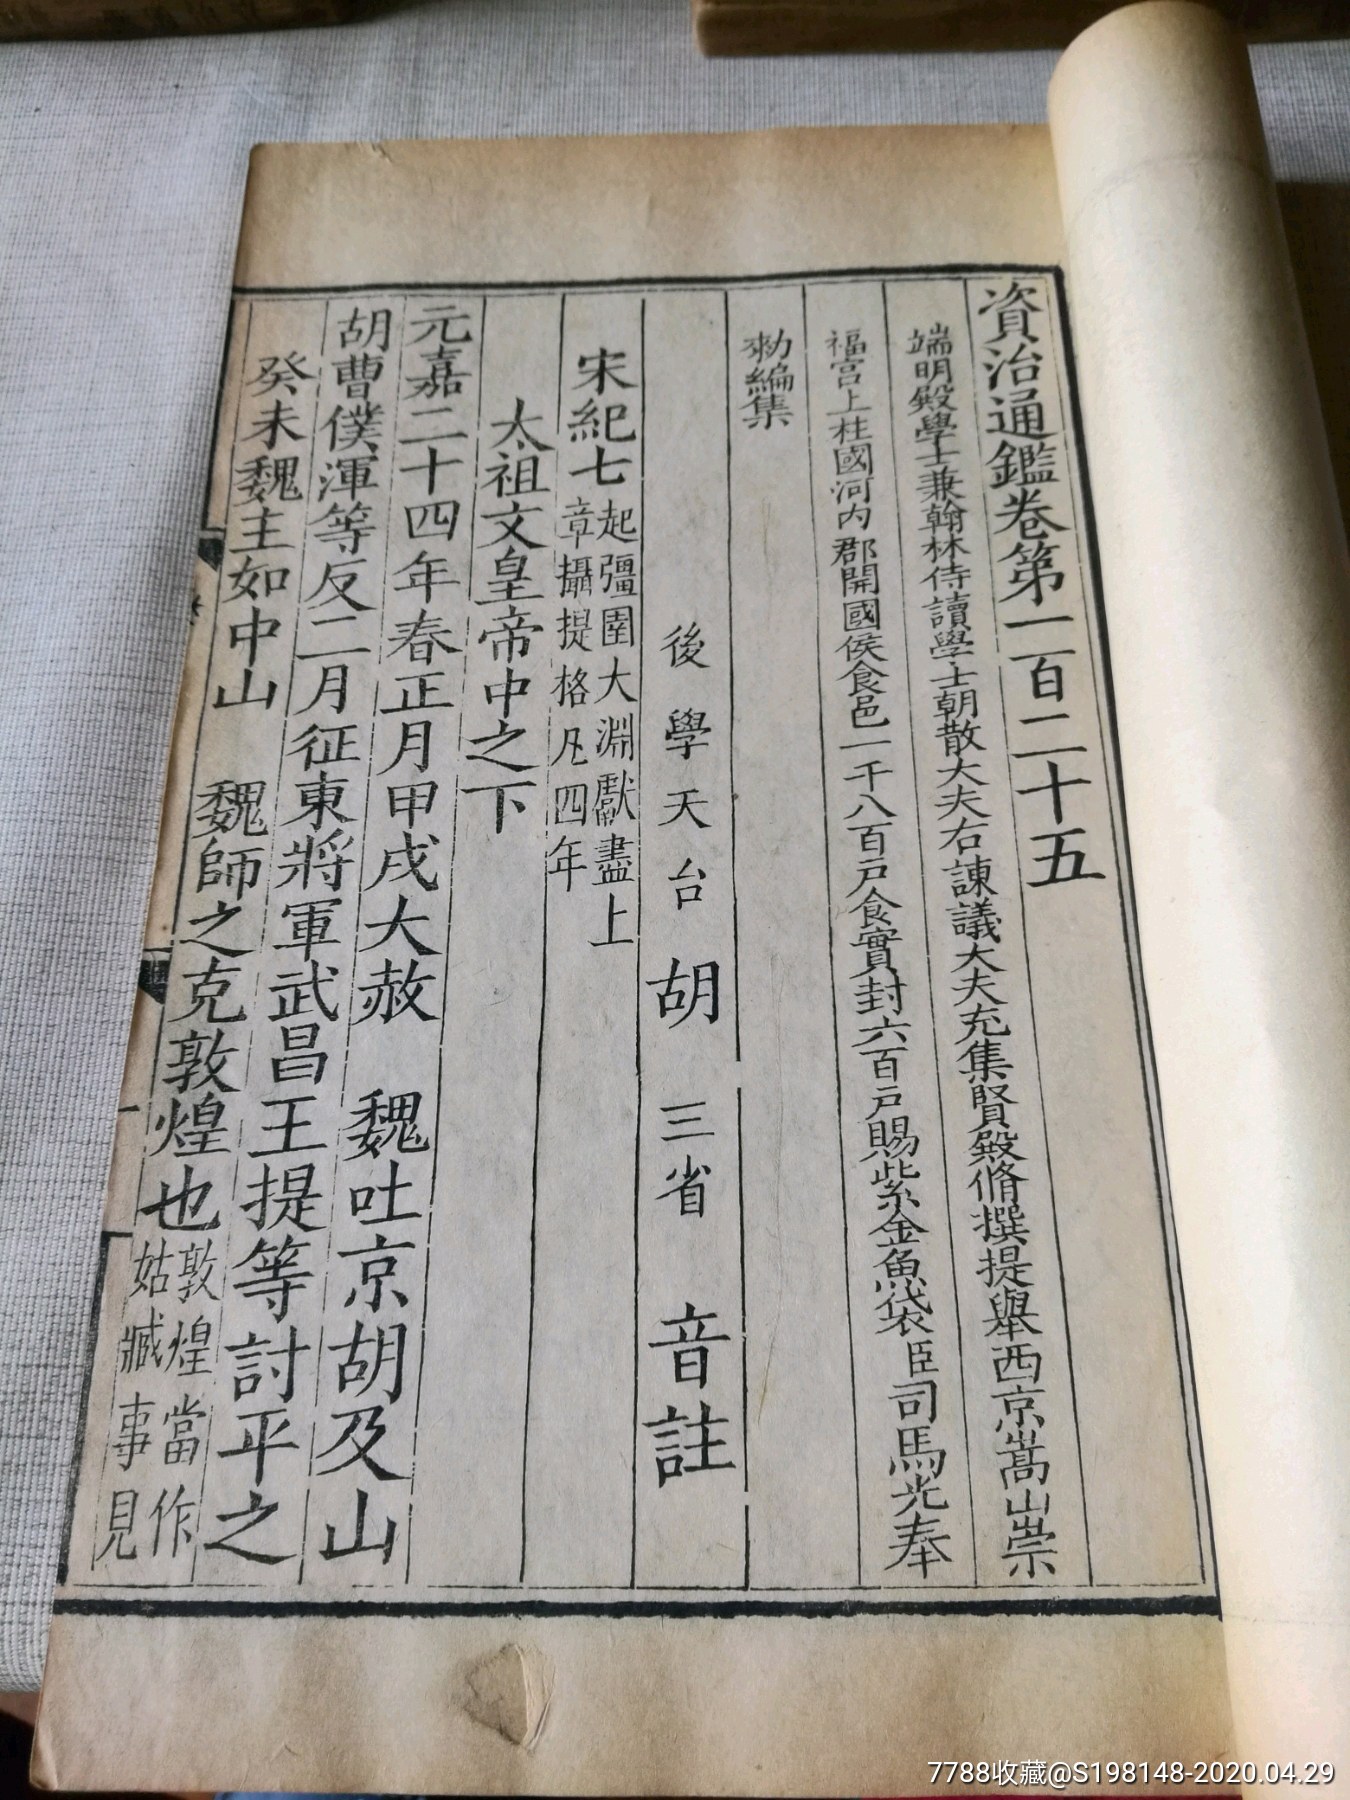 資治通鑑卷第一百二十五
端明殿學士兼翰林侍讀學士朝散大夫右諫議大夫充集賢殿脩撰提舉西京嵩山崇
福宮上柱國河内郡開國侯食邑一千八百戸食實封六百戸賜紫金魚袋臣司馬光奉
勑編集
後學天台胡三省音註
宋紀七起彊圉大淵獻盡上
章攝提格凡四年
太祖文皇帝中之下
元嘉二十四年春正月甲戌大赦 魏吐京胡及山
胡曹僕渾等反二月征東將軍武昌王提等討平之
癸未魏主如中山 魏師之克敦煌也敦煌當作
姑臧事見
7788收藏@S198148-2020.04.29